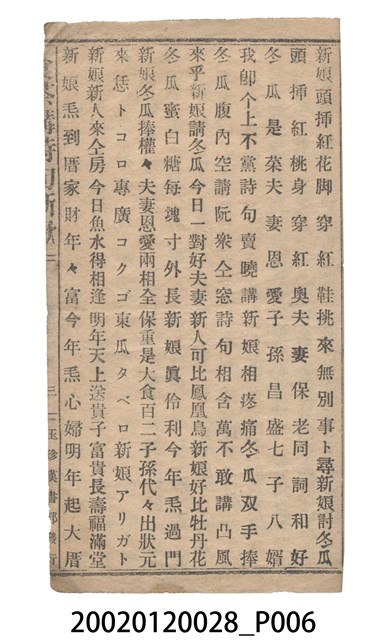 新娘頭揷紅花脚穿紅鞋挑來無別事卜尋新娘討冬瓜
頭揷紅桃身穿紅奧夫妻保老同詞和好
冬瓜是菜夫妻恩愛子孫昌盛七子八婿
我卽个上不黨詩句賣曉講新娘相疼痛冬瓜双手捧
冬瓜腹內空請阮衆仝窓詩句相含萬不敢講凸風
來乎新娘請冬瓜今日一對好夫妻新人可比鳳凰鳥新娘好比牡丹花
冬瓜蜜白糖每塊寸外長新娘眞伶利今年𤆬過門
新娘冬瓜捧權々夫妻恩愛兩相全保重是大食百二子孫代々出狀元
來恁トコロ專廣コクゴ東瓜タベロ新娘アリガト
新娘新人來仝房今日魚水得相逢明年天上送貴子富貴長壽福滿堂
新娘𤆬到厝家財年々富今年𤆬心婦明年起大厝
食茶講詩句新歌 二
三 玉珍漢書部發行
20020120028_P006